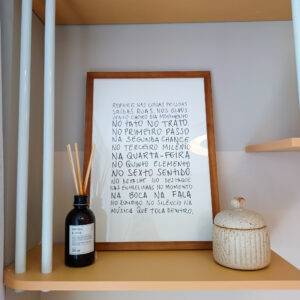 REPARE NAS COISAS PESSOAS
SAÍDAS RUAS, NOS OLHOS
CHEIRO DIA MOVIMENTO
NO FATO NO TRATO.
NO PRIMEIRO PASSO
NA SEGUNDA CHANCE
NO TERCEIRO MILÊNIO
NA QUARTA-FEIRA
NO QUINTO ELEMENTO
NO SEXTO SENTIDO.
NO DETALHE NO DESTAQUE
NAS ENTRELINHAS NO MOMENTO
NA BOCA NA FALA
NO SILÊNCIO NA
MÚSICA QUE TOCA DENTRO.